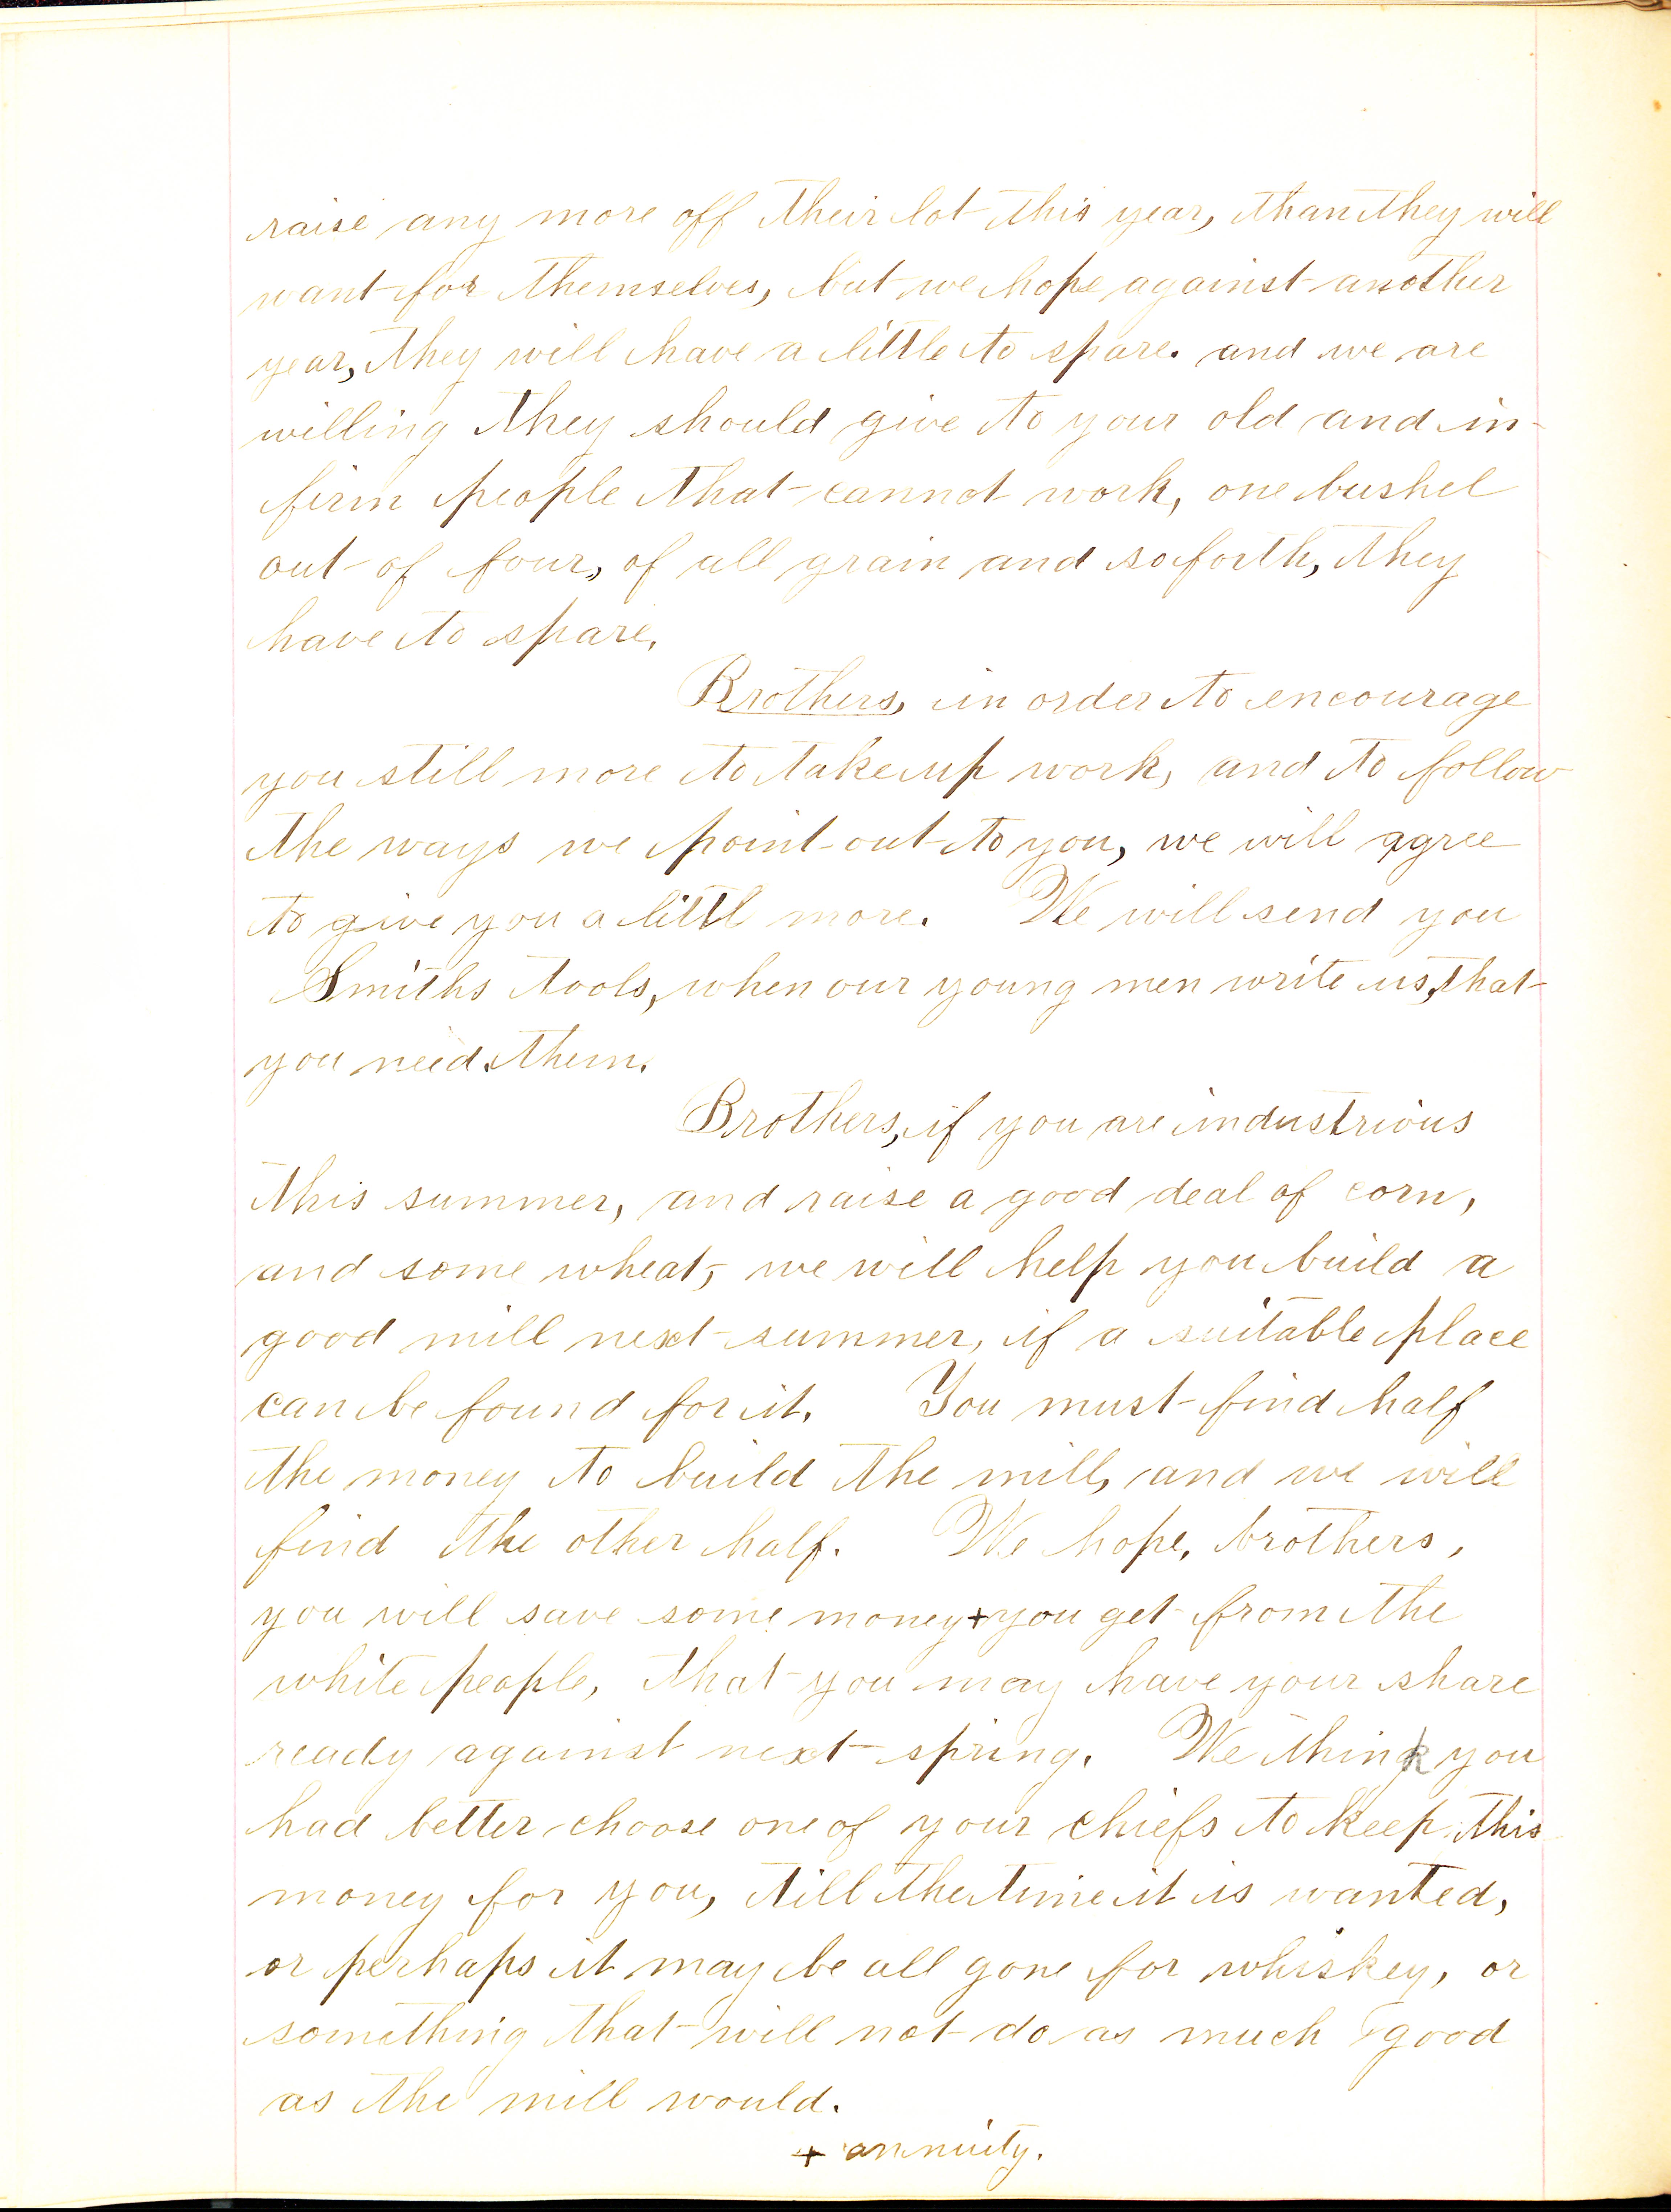 raise any more off their lot this year, than they will
want for themselves, but we hope against another
year, they will have a little to spare. and we are
willing they should give to your old and in-
firm people that cannot work, one bushel
out of four, of all grain and so forth, they
have to spare.
Brothers, in order to encourage
you still more to take up work, and to follow
the ways we point out to you, we will agree
to give you a littl more. We will send you
Smiths tools, when our young men write us, that
you need them.
Brothers, if you are industrious
this summer, and raise a good deal of corn,
and some wheat, we will help you build a
good mill next summer, if a suitable place
can be found for it. You must find half
the money to build the mill, and we will
find the other half. We hope, brothers,
you will save some money + you get from the
white people, that you may have your share
ready against next spring. We think you
had better choose one of your chiefs to keep this
money for you, till the time it is wanted,
or perhaps it may be all gone for whiskey, or
something that will not do as much good
as the mill would.
+ annuity.